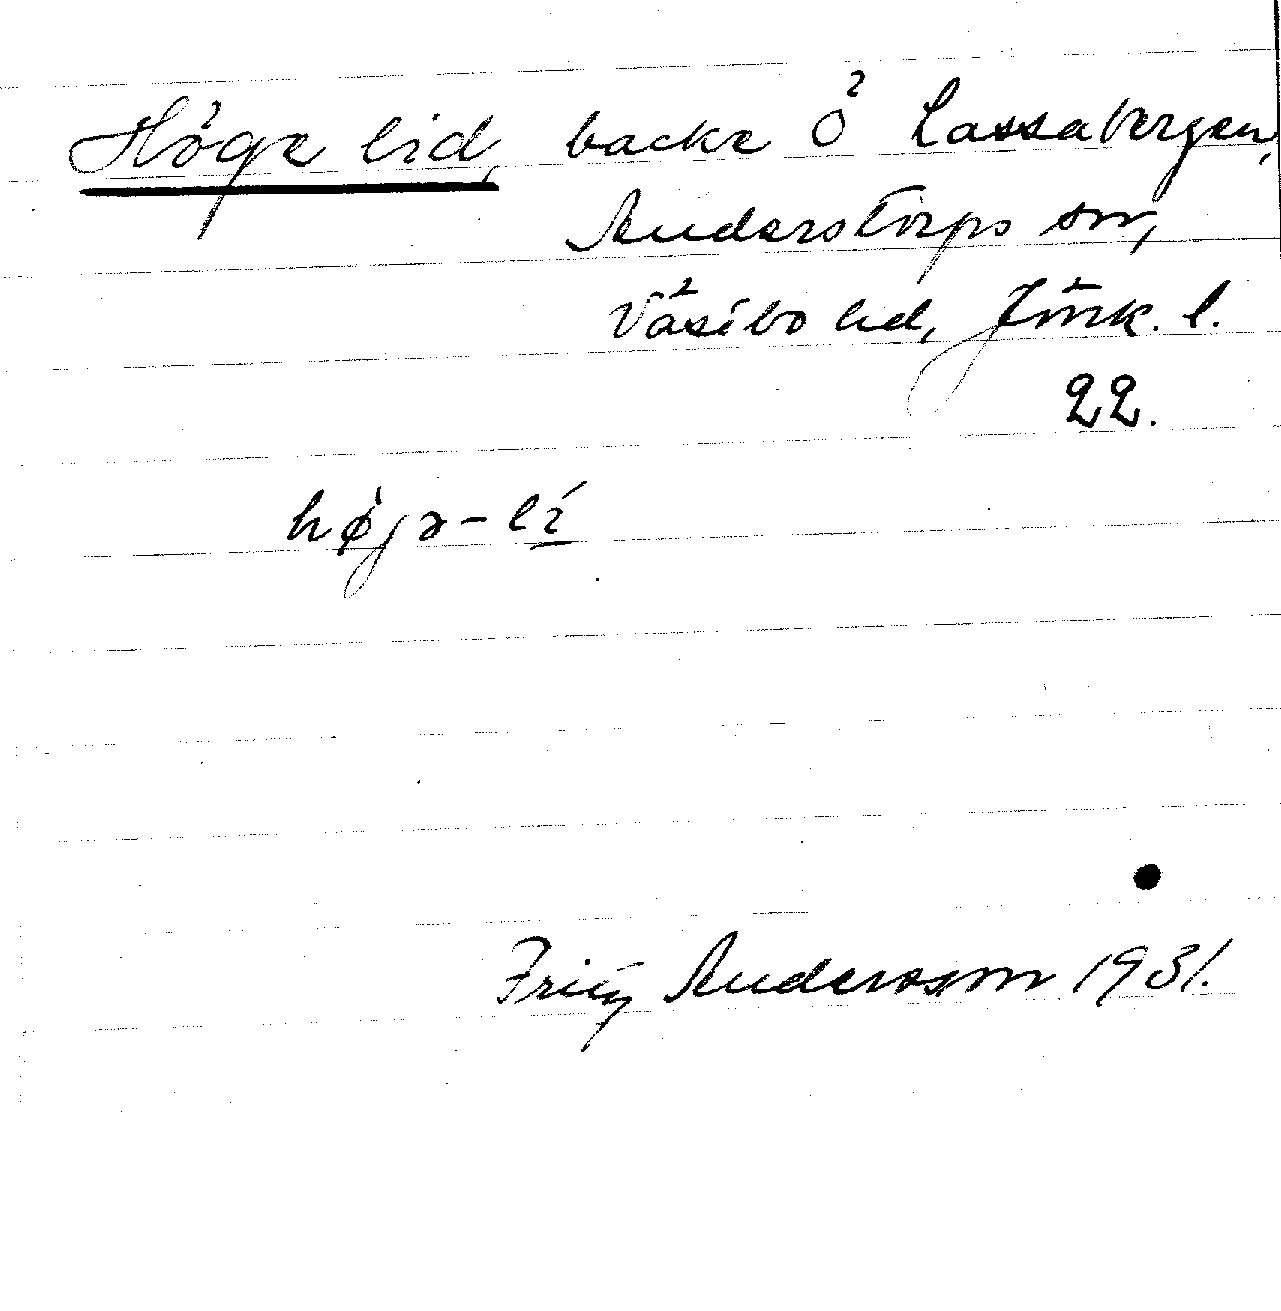 Höge lid, backe Ö Lassabergen,
Anderstorps sn,
Västbo hd, Jönk. l.
22.
hø̀jə-lí̱
Fritz Andersson 1931.